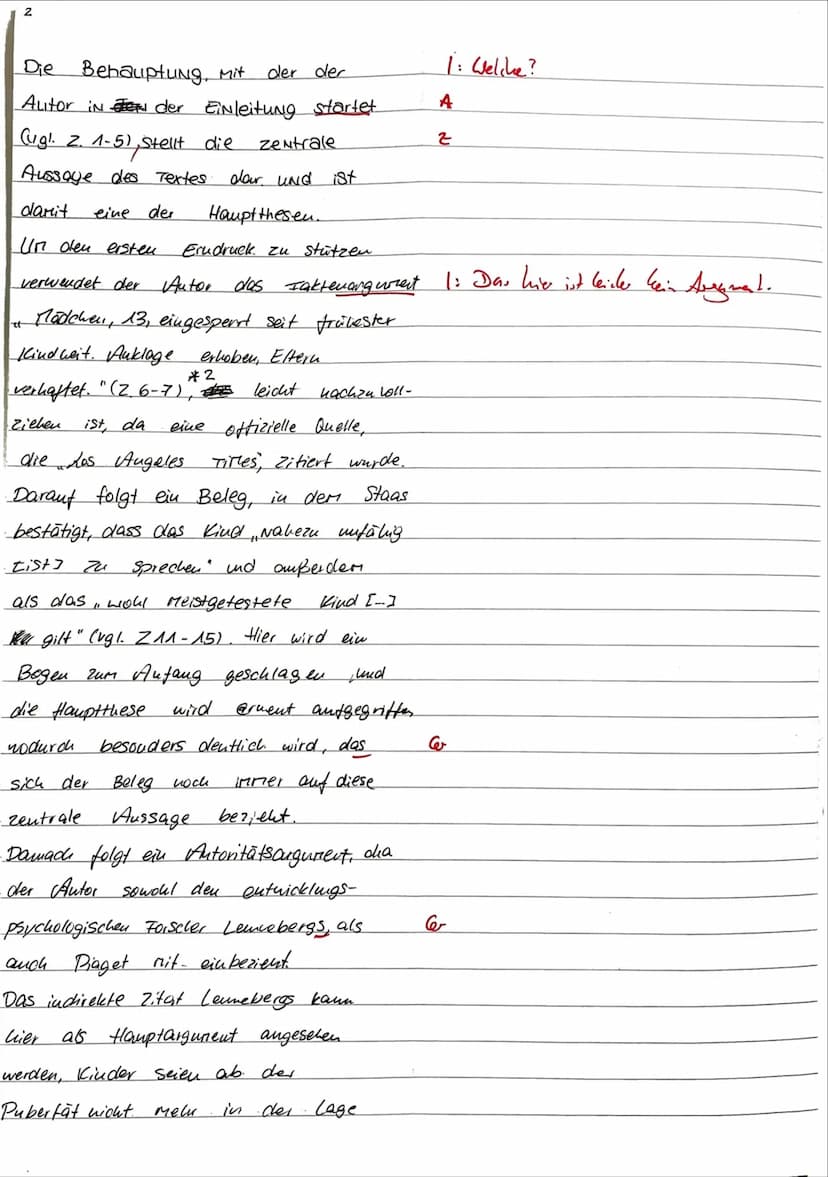 2
Die Behauptung, mit der der I: Welche?
Autor in der Einleitung startet A
(vgl. Z. 1-5), stellt die zentrale Z
Aussage des Textes dar und ist
damit eine der Hauptthesen.
Um den ersten Eindruck zu stützen
verwendet der Autor das Faktenargument I: Das hier ist leider kein Argument.
„Mädchen, 13, eingesperrt seit frühester
Kindheit. Anklage erhoben, Eltern
verhaftet." (Z. 6-7), *2 leicht nachzuvoll-
ziehen ist, da eine offizielle Quelle,
die „Los Angeles Times", zitiert wurde.
Darauf folgt ein Beleg, in dem Staas
bestätigt, dass das Kind „nahezu unfähig
[ist] zu sprechen" und außerdem
als das „wohl meistgetestete Kind [...]
gilt" (vgl. Z 11-15). Hier wird ein
Bogen zum Anfang geschlagen und
die Hauptthese wird erneut aufgegriffen,
wodurch besonders deutlich wird, das Gr
sich der Beleg noch immer auf diese
zentrale Aussage bezieht.
Danach folgt ein Autoritätsargument, da
der Autor sowohl den entwicklungs-
psychologischen Forscher Lennebergs, als Gr
auch Piaget mit einbezieht.
Das indirekte Zitat Lennebergs kann
hier als Hauptargument angesehen
werden, Kinder seien ab der
Pubertät nicht mehr in der Lage